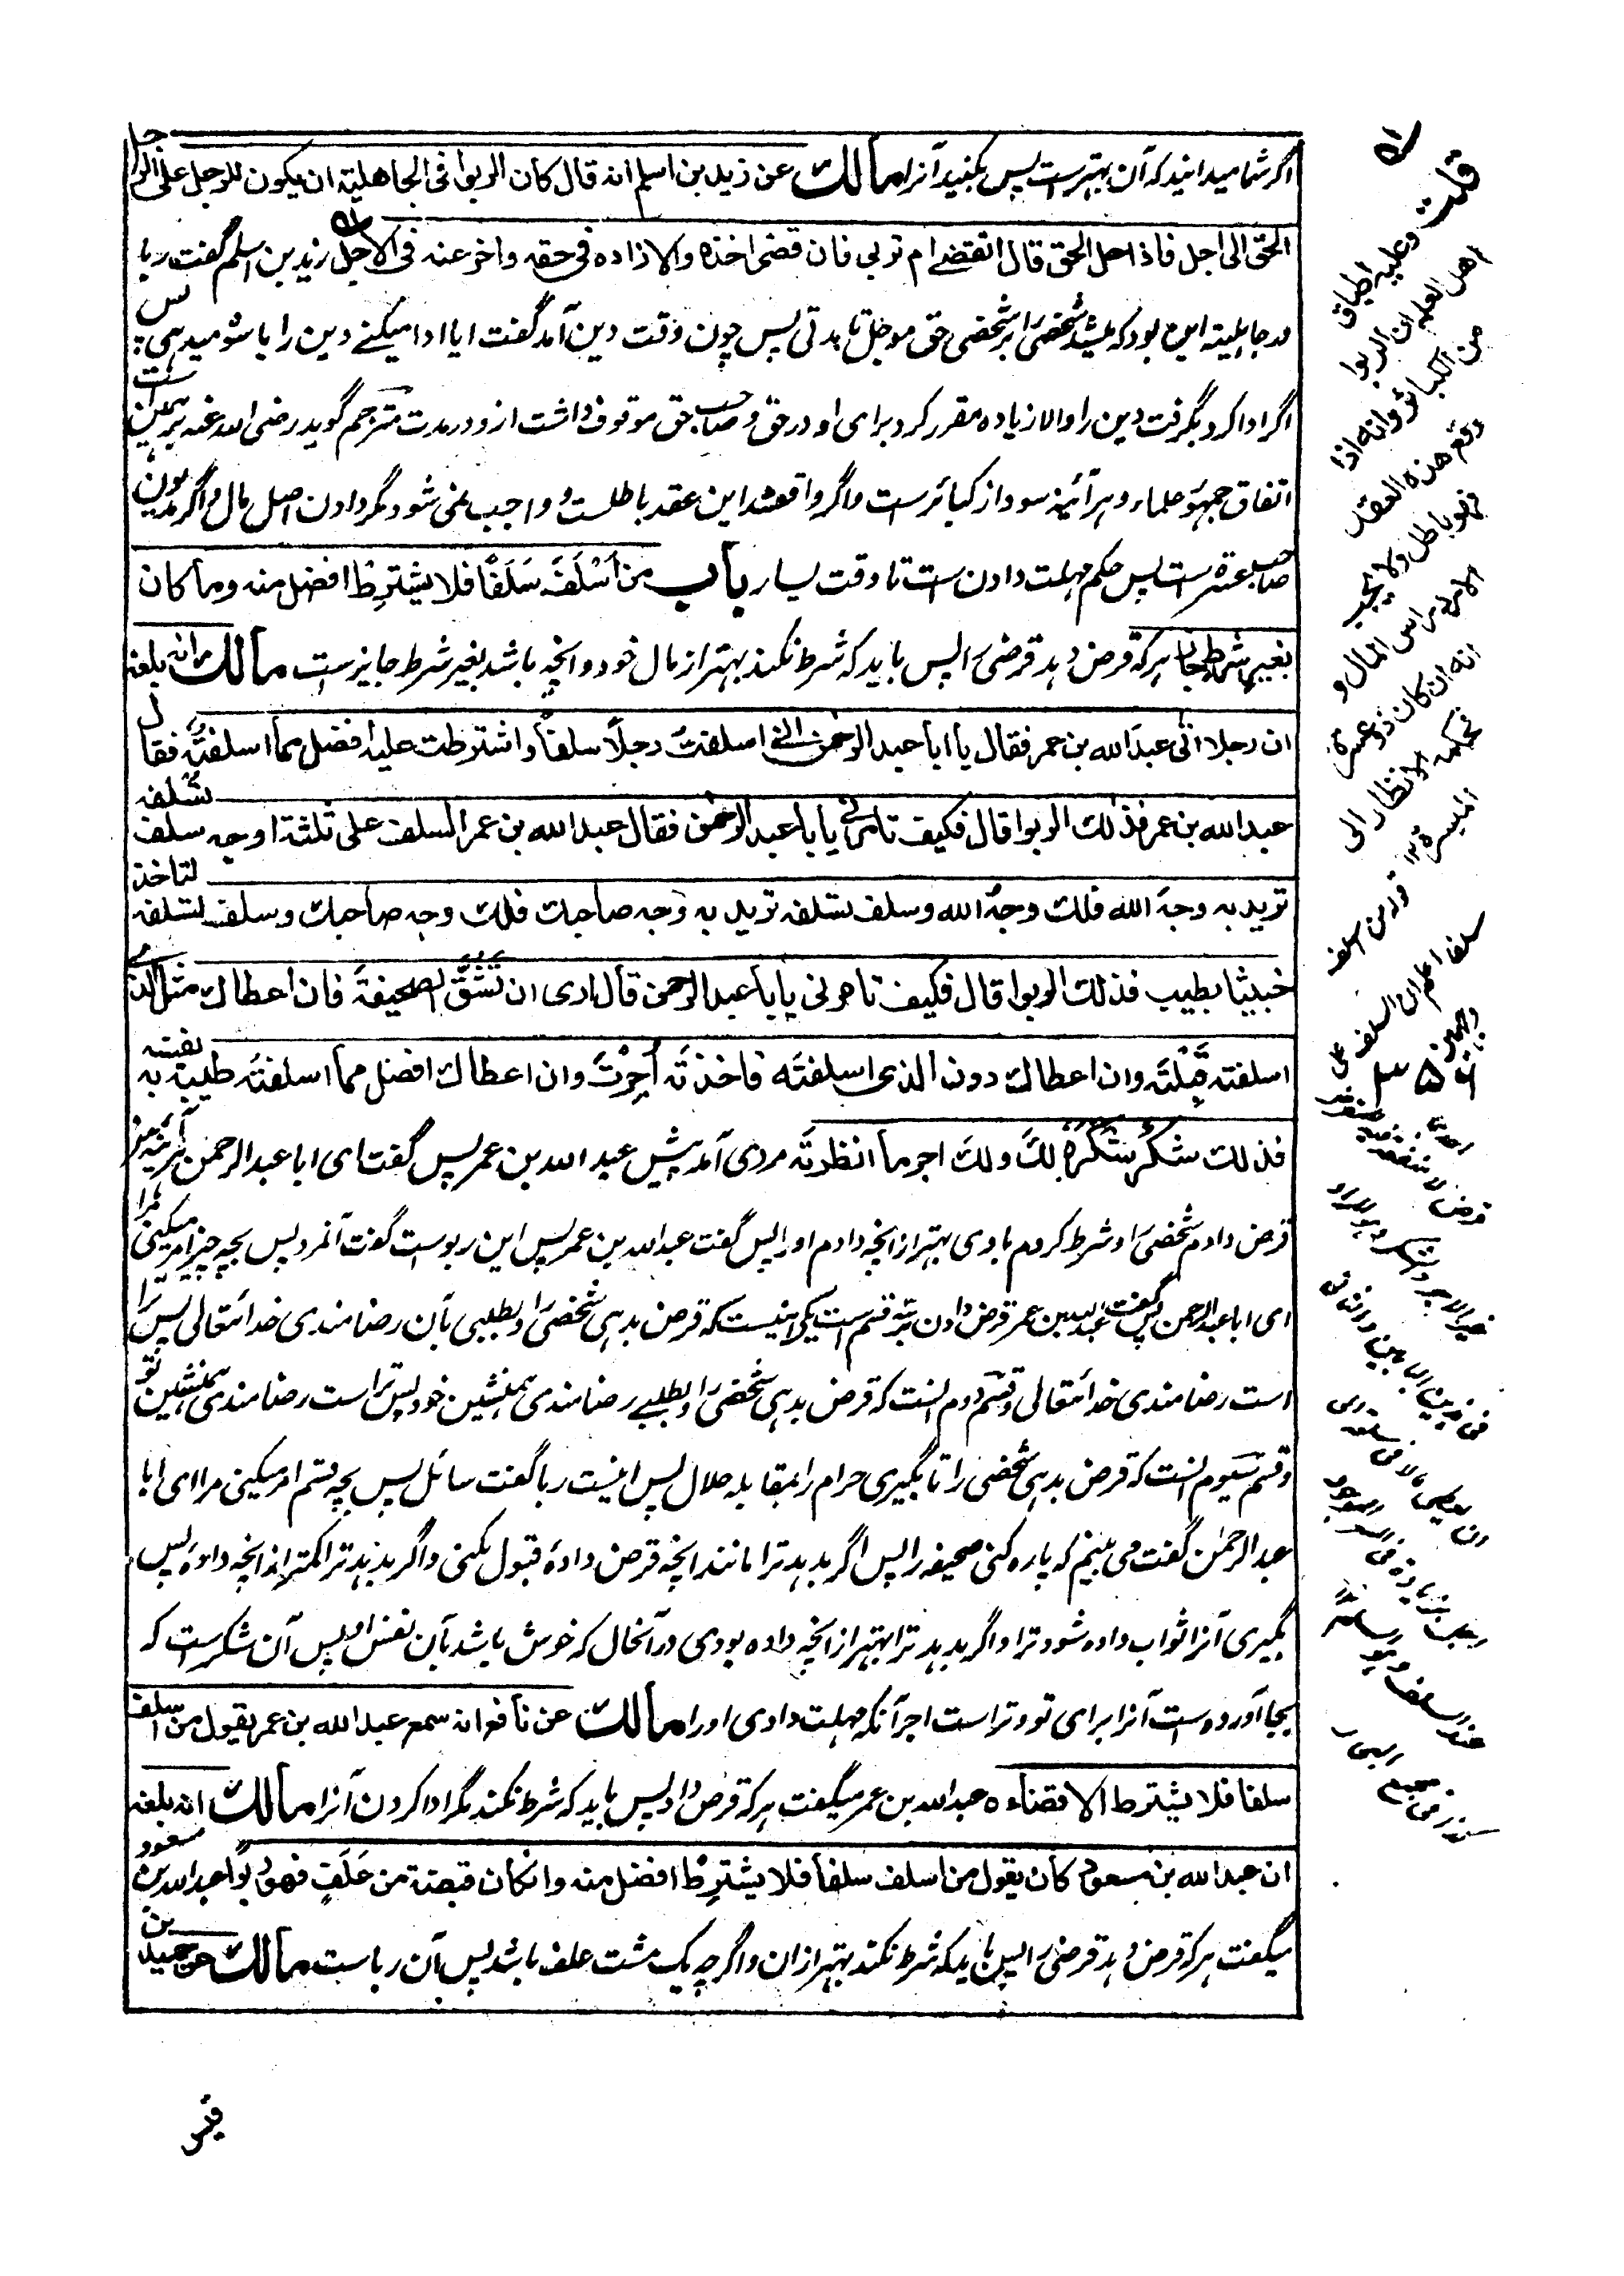 اگر شما میدانید که آن بهترست پس بکنید آنرا مالك عن زيد بن اسلم انه قال كان الربوا فى الجاهلية ان يكون للرجل على الرجل
الحق الى اجل فاذا حل الحق قال اتقضى ام تربى فان قضى اخذه والا زاده فى حقه واخر عنه فى الاجل زید بن اسلم گفت ربا
در جاهلیت این بود که میشد شخصی را بر شخصی حق موجل تا مدتی پس چون وقت دین آمد گفت ایا ادا میکنے دین را یا سود میدهی پس
اگر ادا کرد بگرفت دین را والا زیاده مقرر کرد برای او در حق و صاحب حق موقوف داشت ازو در مدت مترجم گوید رضی الله عنه برین است
اتفاق جمهور علماء و هر آئینه سود از کبائرست و اگر واقع شد این عقد باطلست و واجب نمی شود مگر دادن اصل مال و اگر مدیون
صاحب عسرة ست پس حکم مهلت دادن ست تا وقت یسار باب من اسلف سلفا فلا يشترط افضل منه وما كان
بغير شرط جاز هر که قرض دهد قرضی را پس باید که شرط نکند بهتر از مال خود و انچه باشد بغیر شرط جایزست مالك انه بلغه
ان رجلا اتى عبد الله بن عمر فقال يا ابا عبد الرحمن انى اسلفت رجلا سلفا واشترطت عليه افضل مما اسلفته فقال
عبد الله بن عمر فذلك الربوا قال فكيف تامرنى يا با عبد الرحمن فقال عبد الله بن عمر السلف على ثلثة اوجه سلف تسلفه
تريد به وجه الله فلك وجه الله وسلف تسلفه تريد به وجه صاحبك فلك وجه صاحبك وسلف تسلفه لتاخذ
خبيثا بطيب فذلك الربوا قال فكيف تامرنى يا با عبد الرحمن قال ارى ان تشق الصحيفة فان اعطاك مثل الذى
اسلفته قبلته وان اعطاك دون الذى اسلفته فاخذته اجرت وان اعطاك افضل مما اسلفته طيبة به نفسه
فذلك شكر شكره لك ولك اجر ما انظرته مردی آمد پیش عبد الله بن عمر پس گفت ای ابا عبد الرحمن هر آئینه من
قرض دادم شخصی را و شرط کردم با وی بهتر از انچه دادم او را پس گفت عبد الله بن عمر پس این ربوست گفت آنمرد پس بچه چیز امر میکنی مرا
ای ابا عبد الرحمن پس گفت عبد الله بن عمر قرض دادن بر سه قسم است یکی اینست که قرض بدهی شخصی را و بطلبی بآن رضامندی خدا تعالی پس ترا
است رضامندی خدا تعالی و قسم دوم انست که قرض بدهی شخصی را و بطلبے رضامندی همنشین خود پس ترا است رضامندی همنشین تو
و قسم سیوم انست که قرض بدهی شخصی را تا بگیری حرام را بمقابله حلال پس اینست ربا گفت سائل پس بچه قسم امر میکنی مرا ای ابا
عبد الرحمن گفت می بینم که پاره کنی صحیفه را پس اگر بدهد ترا مانند انچه قرض داده قبول بکنی و اگر بدهد ترا کمتر از انچه داده پس
بگیری آنرا ثواب داده شود ترا و اگر بدهد ترا بهتر از انچه داده بودی در آنحال که خوش باشد بآن نفس او پس آن شکرست که
بجا آورده ست آنرا برای تو و ترا است اجر آنکه مهلت دادی او را مالك عن نافع انه سمع عبد الله بن عمر يقول من اسلف
سلفا فلا يشترط الا قضاءه عبد الله بن عمر میگفت هر که قرض داد پس باید که شرط نکند مگر ادا کردن آنرا مالك انه بلغه
ان عبد الله بن مسعود كان يقول من اسلف سلفا فلا يشترط افضل منه وان كان قبضة من علف فهو ربوا عبد الله بن مسعود
میگفت هر که قرض دهد قرضی را پس باید که شرط نکند بهتر ازان و اگرچه یک مشت علف باشد پس آن رباست مالك عن حميد بن
قلت وعليه اطباق
اهل العلم ان الربوا
من الكبائر وانه اذا
وقع هذه العقد
فهو باطل ولا يجب
الا رد راس المال و
انه ان كان ذو عسرة
فحكمه الانظار الى
الميسرة ١٢
قوله من اسلف
سلفا اعلم ان السلف على
وجهين
قيس